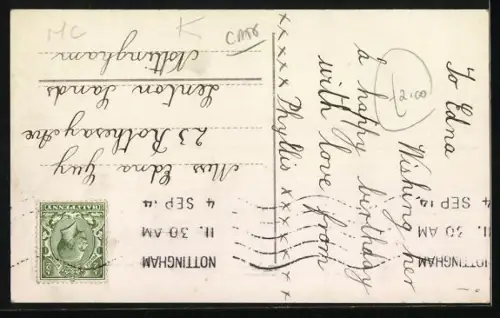 To Edna
Wishing her
a happy birthday
with love from
x x x x x Phyllis x x x x x x x
Miss Edna Guy
23 Rothesay Ave
Lenton Sands
Nottingham
NOTTINGHAM
11. 30 AM
4 SEP 14
NOTTINGHAM
11. 30 AM
4 SEP 14
HALFPENNY
MC
K
2.00